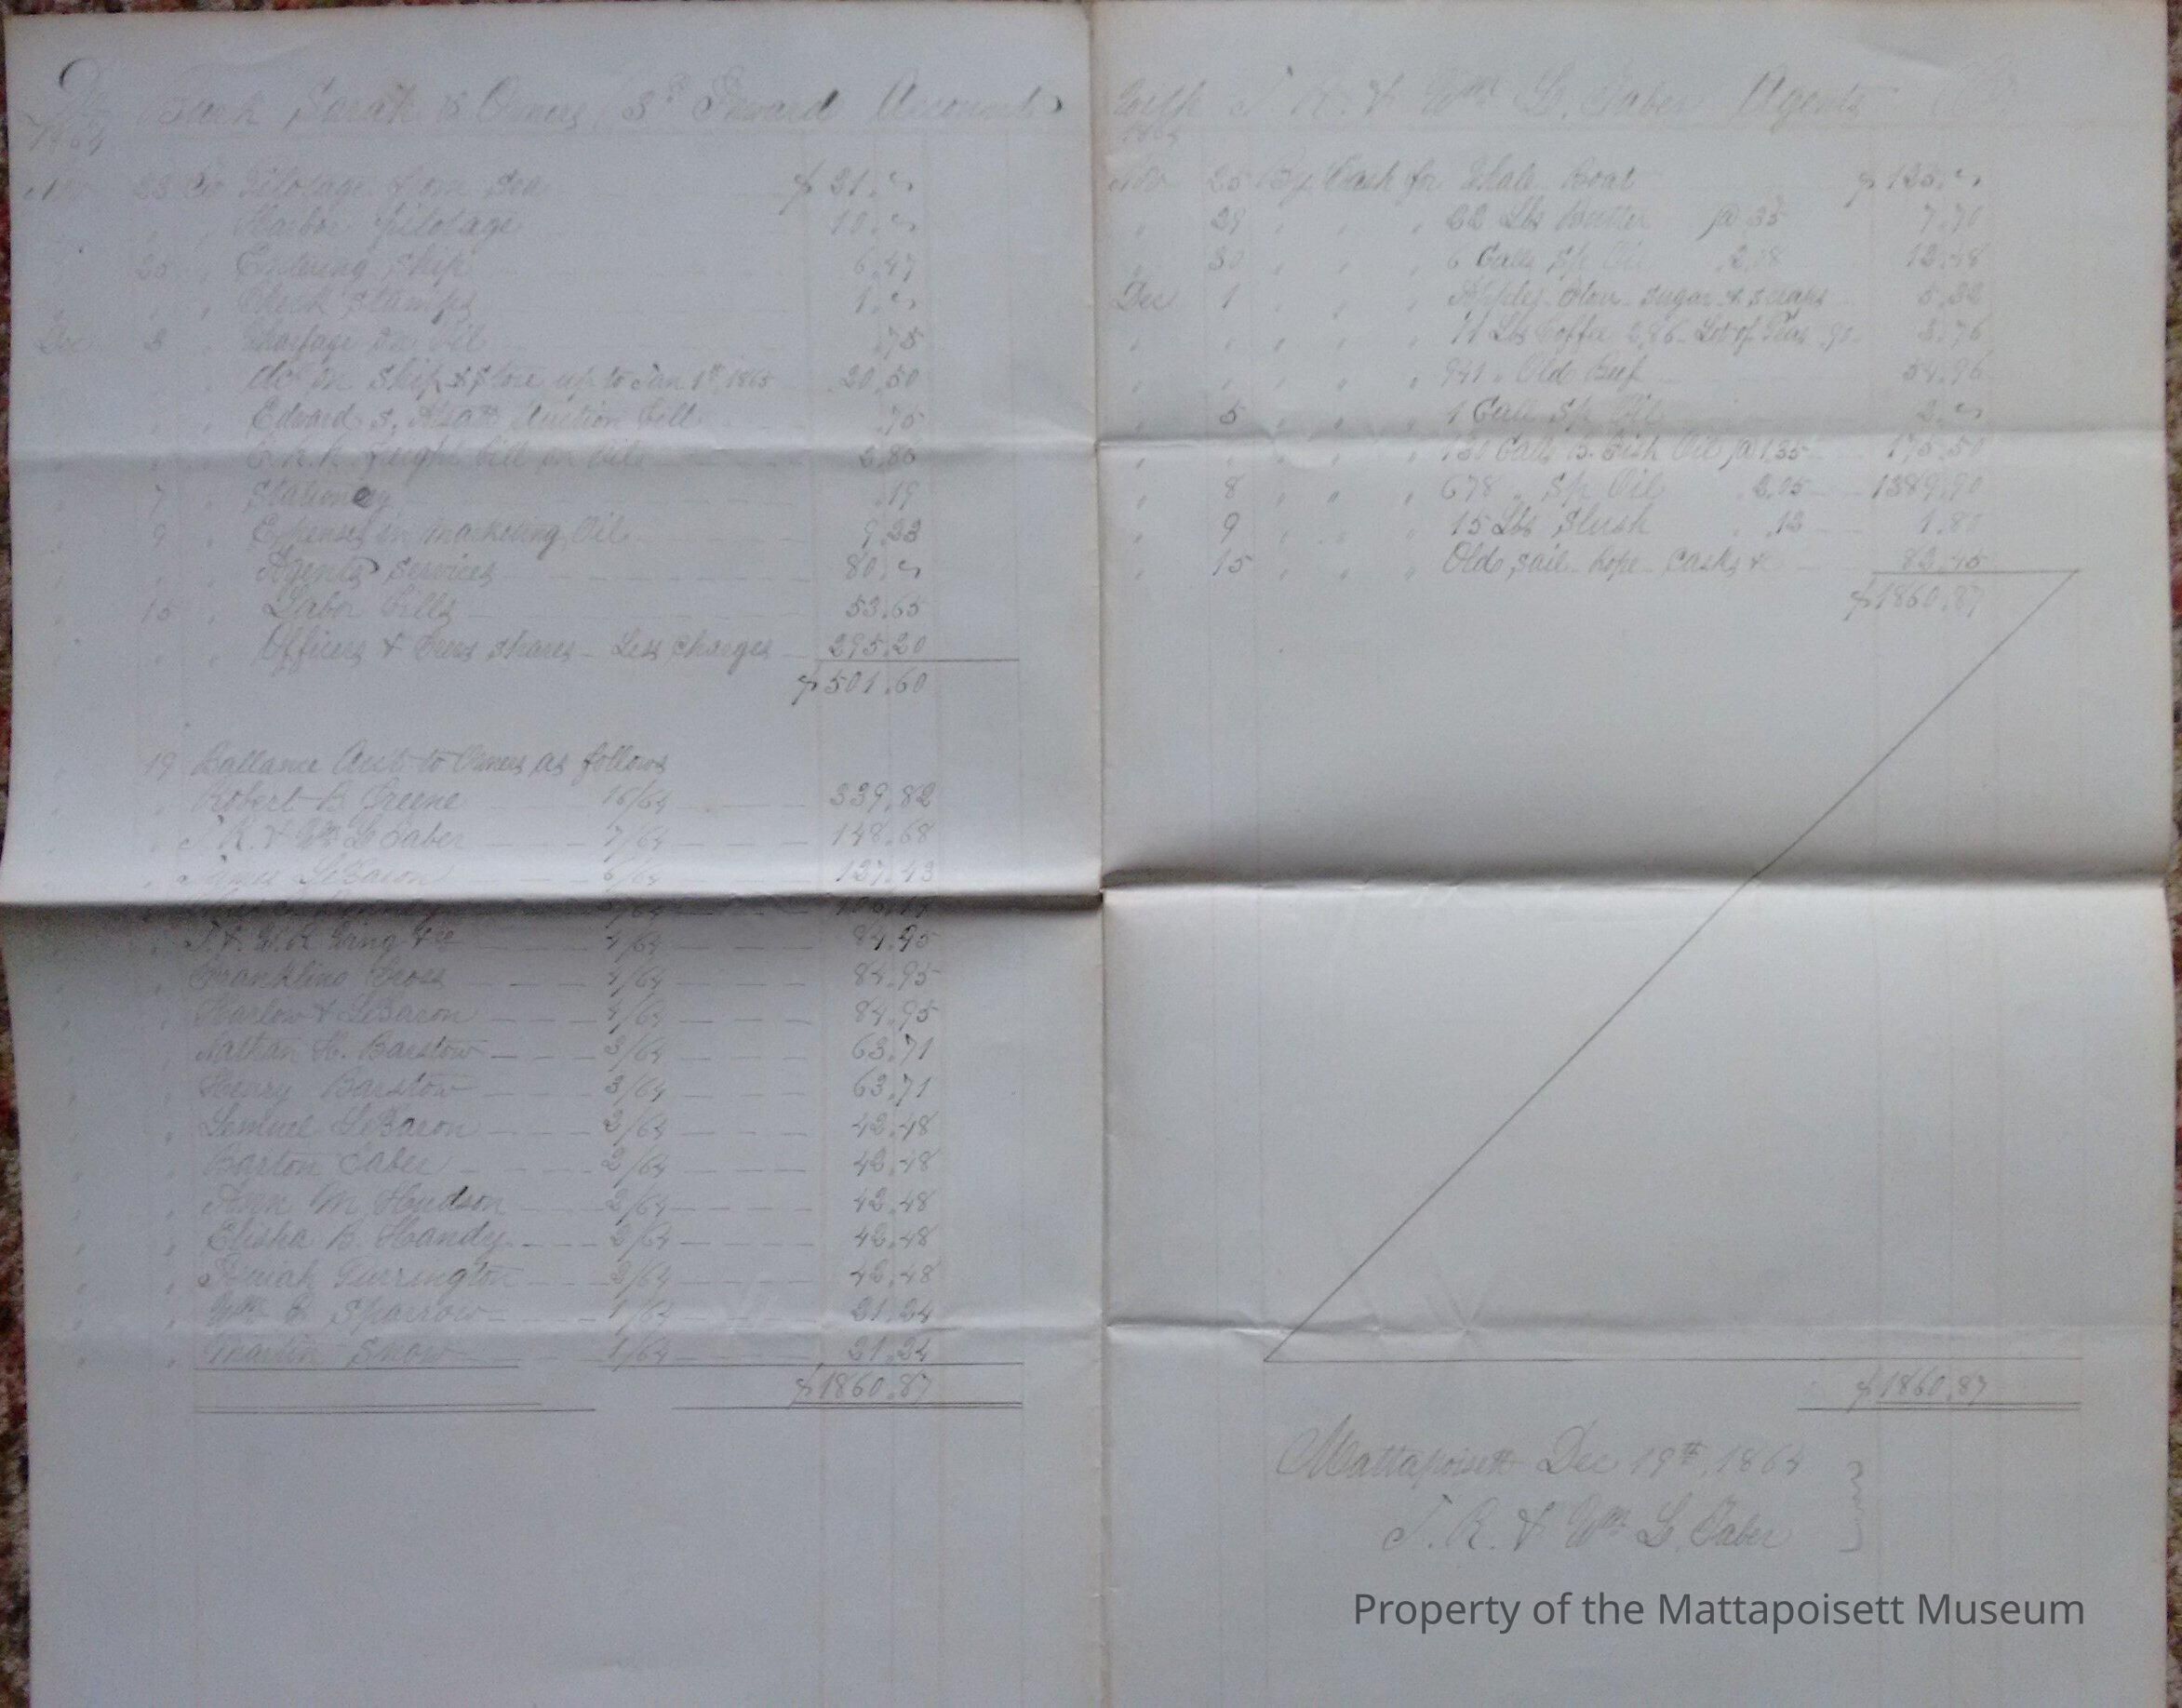 Dr Bark Sarah & Owners, 3d Inward Accounts
1864
Nov 23 To Pilotage from Sea $21.
" " " Harbor pilotage 10.
" 25 " Entering Ship 6.47
" " " Check Stamps 1.
Dec 3 " Wharfage on Oil .75
Do on Ship & store up to Jan 1st, 1865 20.50
" " " Edward S. Auction bill .75
" " " Freight bill on Oil 2.86
" 7 " Stationery .19
" 9 " Expenses in marketing Oil 9.23
" " " Agents Services 80.
" 15 " Labor Bills 53.65
" " " Officers & Crews shares - Less charges 295.20
$501.60
" 19 Ballance Due to Owners as follows
" " Robert B. Greene 16/64 339.82
" " J. R. & Wm L. Taber 7/64 148.68
" " James LeBaron 6/64 127.43
5/64 106.19
" " J. & W. R. Wing & Co 4/64 84.95
" " Franklin Cross 4/64 84.95
" " Harlow & LeBaron 4/64 84.95
" " Nathan H. Barstow 3/64 63.71
" " Henry Barstow 3/64 63.71
" " Lemuel LeBaron 2/64 42.48
" " Barton Taber 2/64 42.48
" " Ann M Hudson 2/64 42.48
" " Elisha B. Handy 2/64 42.48
" " Purrington 2/64 42.48
" " Wm E. Sparrow 1/64 21.24
" " Martin Snow 1/64 21.24
$1860.87
With J. R. & Wm L. Taber Agents Cr
1864
Nov 25 By Cash for Whale Boat $125.
" 29 " " " 22 Lbs Butter @ 35 7.70
" 30 " " " 6 Galls Sp Oil 2.08 12.48
Dec 1 " " " Apples. flour. sugar & scraps 5.32
" " " " " 11 Lbs Coffee 2.86 - Lot of Peas .90 3.76
" " " " " 941 " Old Beef 54.96
" 5 " " " 1 Gall Sp Oil 2.
" " " " " 130 Galls B. Fish Oil @ 1.35 175.50
" 8 " " " 678 " Sp Oil " 2.05 1389.90
" 9 " " " 15 Lbs Slush " .12 1.80
" 15 " " " Old sail. rope. casks & 82.45
$1860.87
$1860.87
Mattapoisett Dec 19th, 1864
J. R. & Wm L. Taber
Property of the Mattapoisett Museum